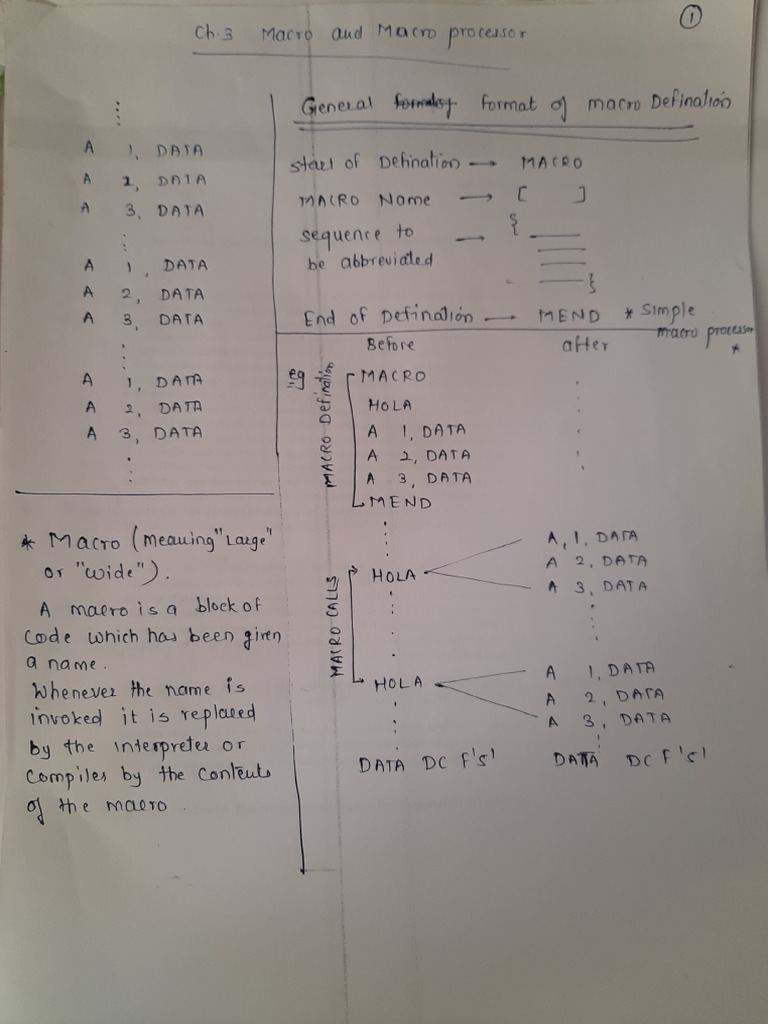 1
Ch.3 Macro and Macro processor
A 1, DATA
A 2, DATA
A 3, DATA
A 1, DATA
A 2, DATA
A 3, DATA
A 1, DATA
A 2, DATA
A 3, DATA
* Macro (meaning "Large"
or "wide").
A macro is a block of
code which has been given
a name.
Whenever the name is
invoked it is replaced
by the interpreter or
compiler by the contents
of the macro.
General format of macro Defination
start of Defination → MACRO
MACRO Name → [ ]
sequence to → {
be abbreviated }
End of Defination → MEND * Simple
macro processor *
Before after
eg
MACRO Defination
MACRO
HOLA
A 1, DATA
A 2, DATA
A 3, DATA
MEND
MACRO CALLS
HOLA
A, 1, DATA
A 2, DATA
A 3, DATA
HOLA
A 1, DATA
A 2, DATA
A 3, DATA
DATA DC F'5' DATA DC F'5'